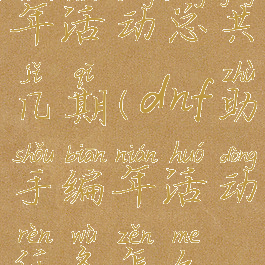 年活动总共
jǐ qī zhù
几期(dnf助
shǒu biān nián huó dòng
手编年活动
rèn wù zěn me